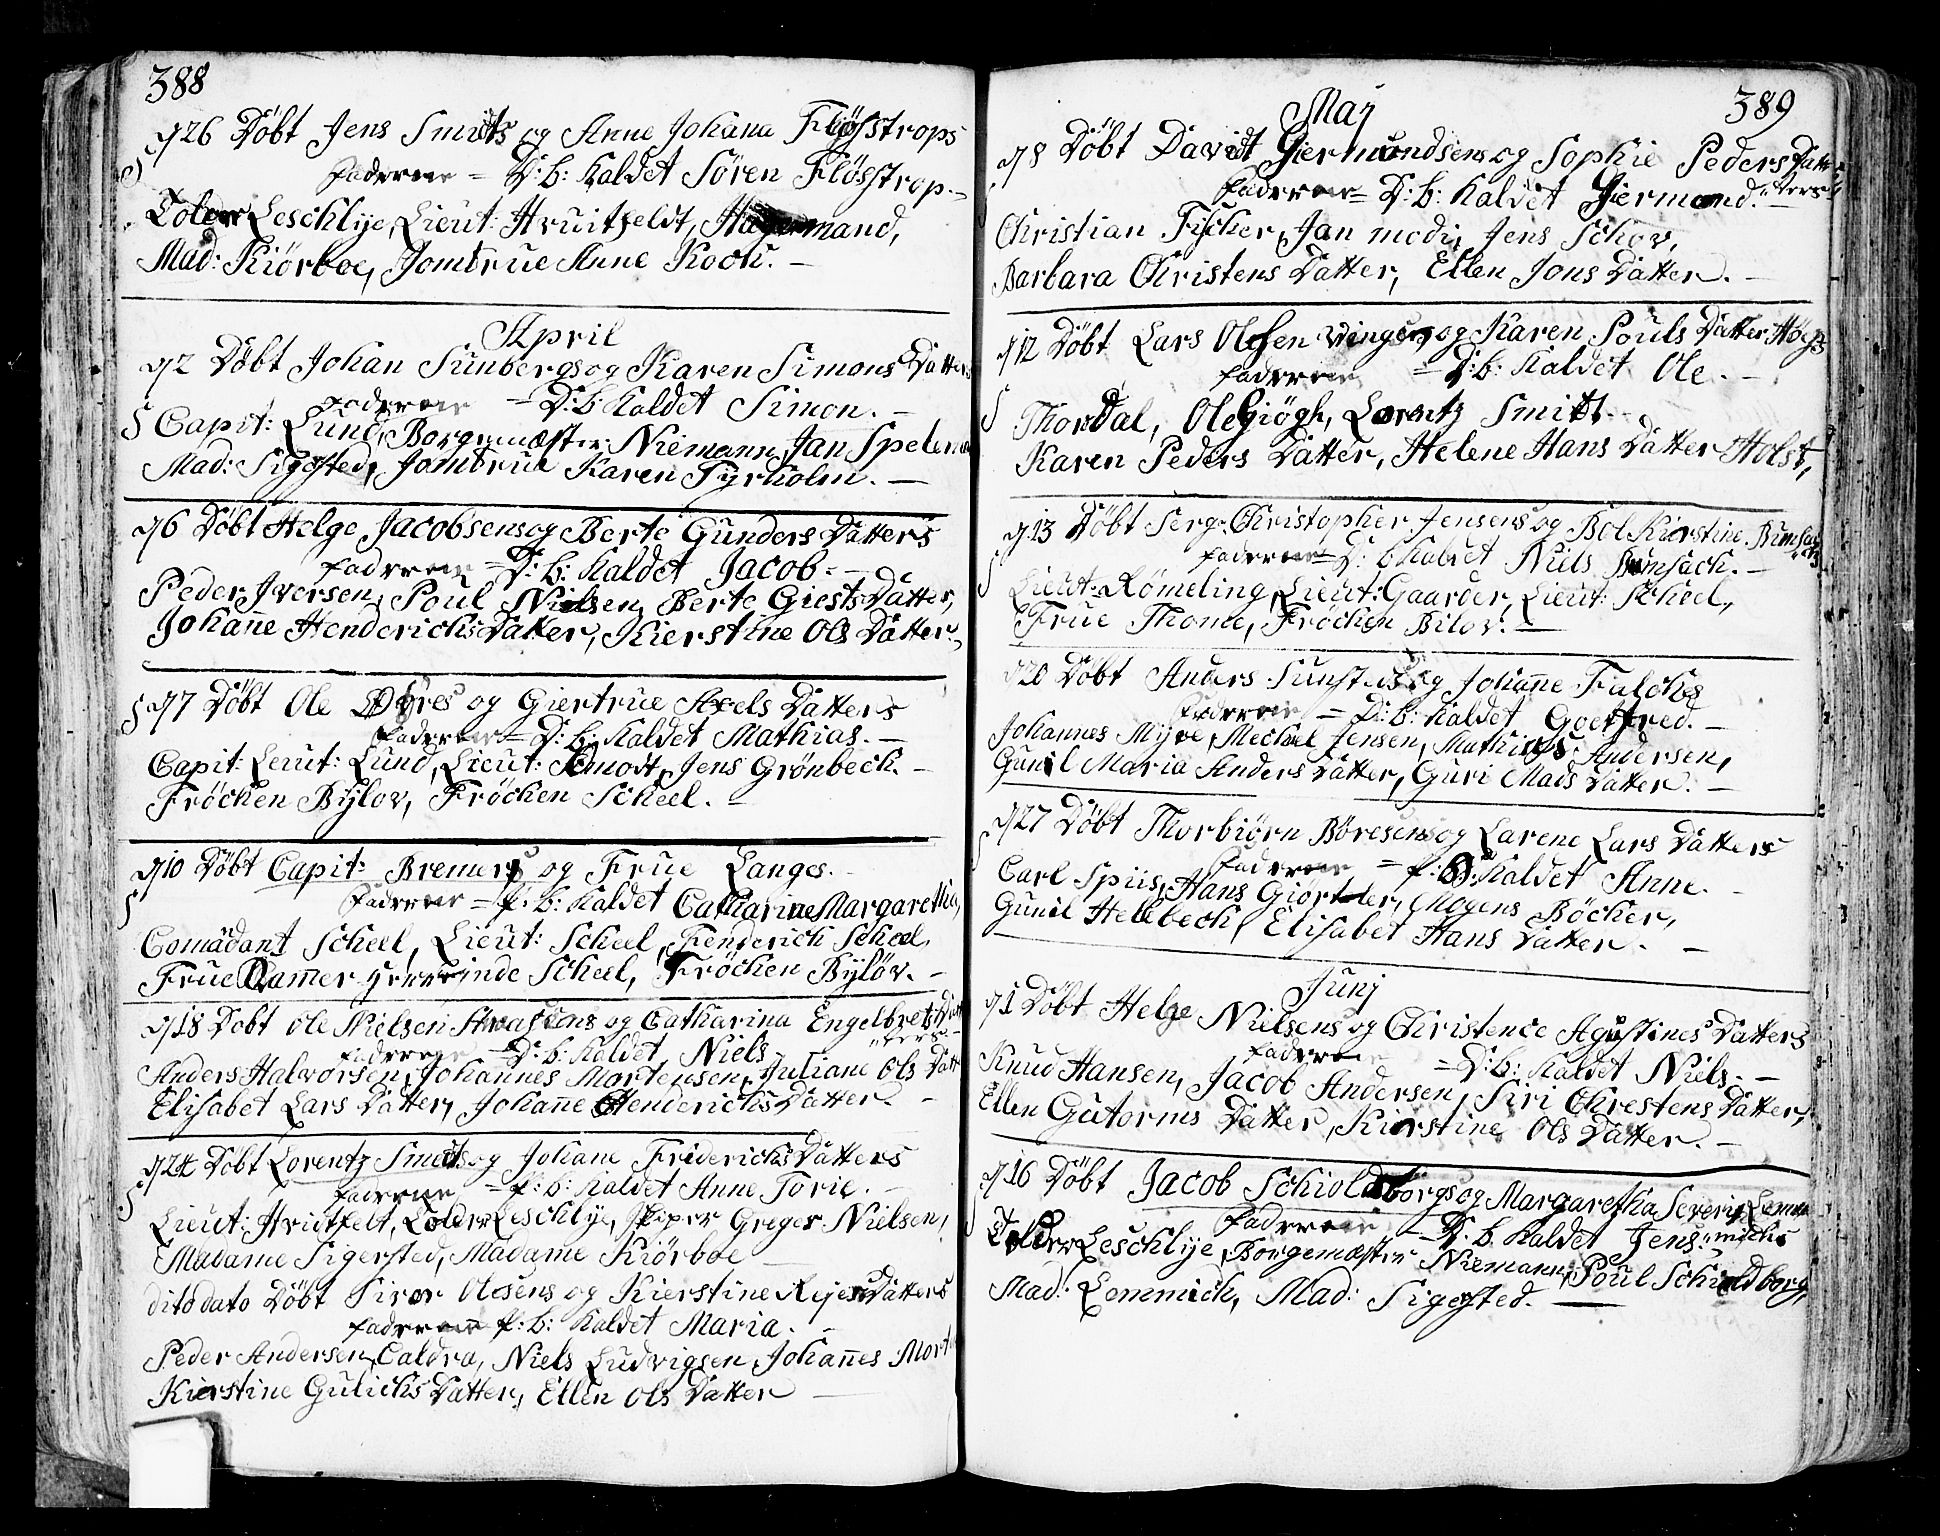 388
d 26 Döbt Jens Smidts og Anne Johana Flösstrops
Fadrene = D: b: Kaldet Sören Flösstrop. -
Tolder Leschlye, Lieut: Hvuitfeldt, Hagermand,
Mad: Kiörboe, Jomfrue Anne Koch. -
April
d 2 Döbt Johan Sunbergs og Karen Simons Datters
Fadrene = D: b Kaldet Simon. -
S Capit: Lund, Borgemæster Niemann, Jan Spelema
Mad: Sigersted, Jomfrue Karen Tyrholm. -
d 6 Döbt Helge Jacobsens og Berte Gunders Datters
Fadrene = D: b: Kaldet Jacob. -
Peder Iversen, Poul Nielsen, Berte Giests Datter,
Johañe Henderichs Datter, Kierstine Ols Datter.
S d 7 Döbt Ole Dyres og Giertrue Axels Datters
Fadrene = D: b: Kaldet Mathias. -
Capit: Leut: Lund, Lieut: Jens Grönbech. -
Fröchen Bylov, Fröchen Scheel. -
d 10 Döbt Capit: Bremers og Frue Langes.
Fadrene = P: b: Kaldet Catharine Margaretha,
Comādant Scheel, Lieut: Scheel, Fenderich Scheel,
Frue Ramer Herrinde Scheel, Fröchen Bylöv. -
d 18 Döbt Ole Nielsen og Catharina Engelbrets Dat
Fadrene = D: b: Kaldet Niels "ters -
Anders Halvorsen, Johannes Mortensen, Juliane Ols Datt
Elisabet Lars Datter, Johañe Henderichs Datter. -
d 24 Döbt Lorentz Smidts og Johane Friderichs Datters
Fadrene = P: b: Kaldet Anne Torie. -
S Lieut: Hvidtfelt, Tolder Leschlye, Skiper Greger Nielsen,
Madame Sigersted, Madame Kiörboe -
dito dato Döbt Siver Olesens og Kierstine Rejers Datters
Fadrene P: b: Kaldet Maria. -
Peder Andersen Caldra, Niels Ludvigsen, Johañes Mort
Kierstine Gulichs Datter, Ellen Ols Datter -
389
Maj
d 8 Döbt Davidt Giermundsens og Sophie Peders Dat
Fadrene = D: b: Kaldet Giermond. "ters
Christian Fischer, Jan modi, Jens Schov,
Barbara Christens Datter, Ellen Jons Datter. -
d 12 Döbt Lars Olesen Vinger og Karen Pouls Datter Höegs
Fadrene = D: b: Kaldet Ole. -
S Thordal, Ole Giögh, Lorentz Smitt.
Karen Peders Datter, Helene Hans Datter Holst,
d 13 Döbt Serg: Christopher Jensens og Bol Kirstine Bumsac
Fadrene D: b Kaldet Niels Bumsach. -
S Lieut: Römeling, Lieut: Gaarder, Lieut: Scheel,
Frue Thome, Fröchen Bilov. -
d 20 Döbt Anders Sunsteds og Johañe Falchs
Fadrene = D: b: Kaldet Goetfred. -
Johannes Myre, Mechel Jensen, Mathias Andersen,
Gunil Maria Anders Datter, Guri Mads Datter. -
d 27 Döbt Thorbiörn Böresens og Larene Lars Datters
Fadrene = P: B: Kaldet Anne. -
Carl Spiis, Hans Giortler, Mogens Böcker,
Gunil Hellbech, Elisabet Hans Datter. -
Junj
d 1 Döbt Helge Nielsens og Christence Agustines Datters
Fadrene = D: b: Kaldet Niels. -
Knud Hansen, Jacob Andersen, Siri Chrestens Datter,
Ellen Gutorms Datter, Kierstine Ols Datter. -
d 16 Döbt Jacob Schioldborgs og Margaretha Severin Lemm
Fadrene = D: b. Kaldet Jens. "michs
Tolder Leschlye, Borgemæster Niemann, Poul Schioldborg,
Mad: Lemmich, Mad: Sigersted. -